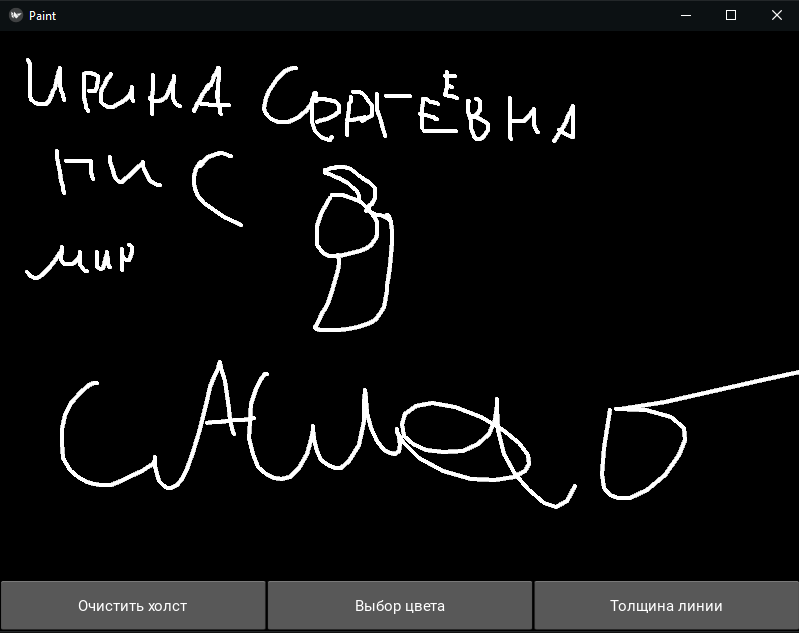 Paint
ИРИНА СЕРГЕЕВНА
ПИС
мир
Очистить холст Выбор цвета Толщина линии